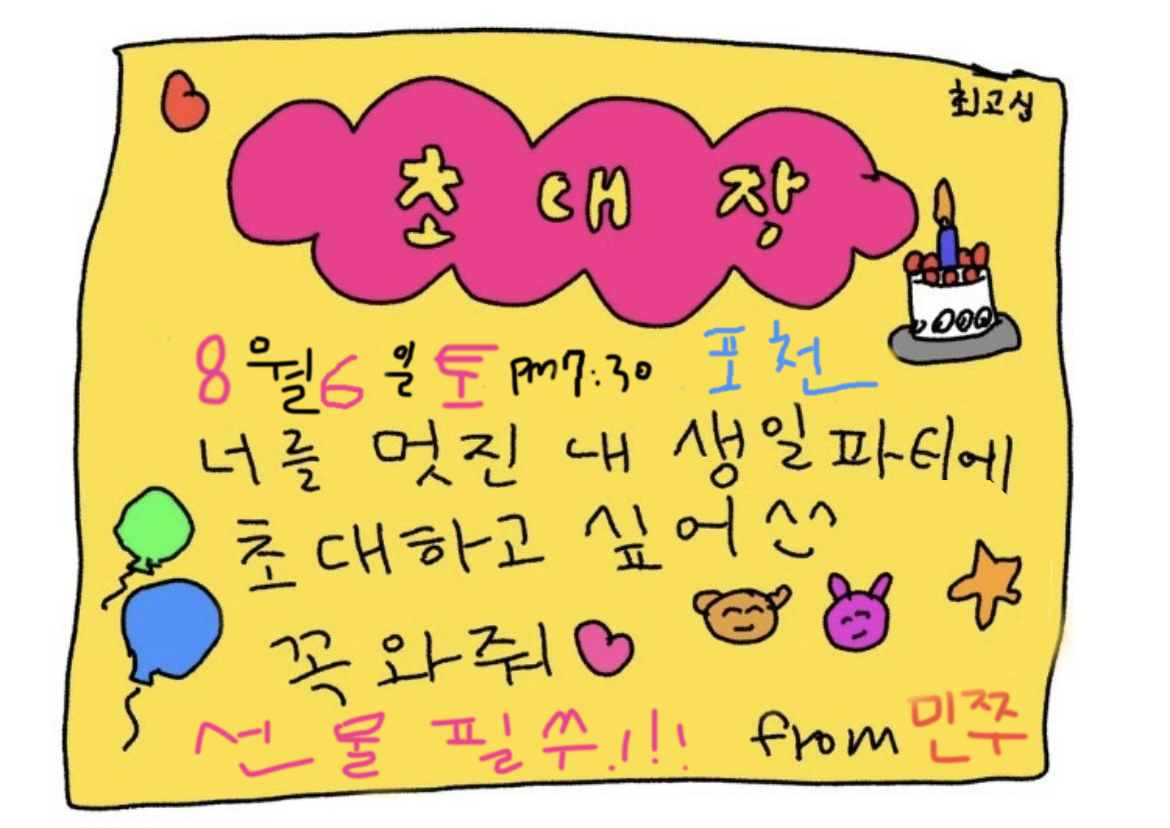 최고심
초대장
8월6일 토 pm7:30 포천
너를 멋진 내 생일파티에
초대하고 싶어 ^^
꼭 와줘
선물 필쑤!!! from 민쭈